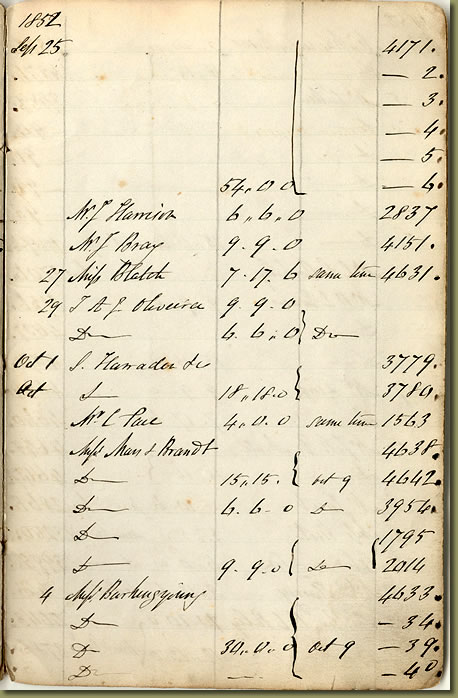 1852
Sep 25 4171.
— 2.
— 3.
— 4.
— 5.
54.. 0 0 — 6.
Mr J Harrison 6.. 6. 0 2837
Mr J Bray 9. 9. 0 4151.
27 Miss Blatch 7. 17. 6 same time 4631.
29 T A G Oliveira 9. 9. 0
Do 6. 6.. 0 Do
Oct 1 S. Harraden & Co 3779.
Oct Do 18.. 18. 0 3780.
Mr C 4. 0. 0 same time 1563
Messrs & Brandt 4638.
Do 15.. 15. Oct 9 4642.
Do 6. 6. 0 Do 3954.
Do 1795
Do 9. 9. 0 Do 2014
4 4633.
Do — 34.
Do 30.. 0.. 0 Oct 9 — 39.
Do — — 40.